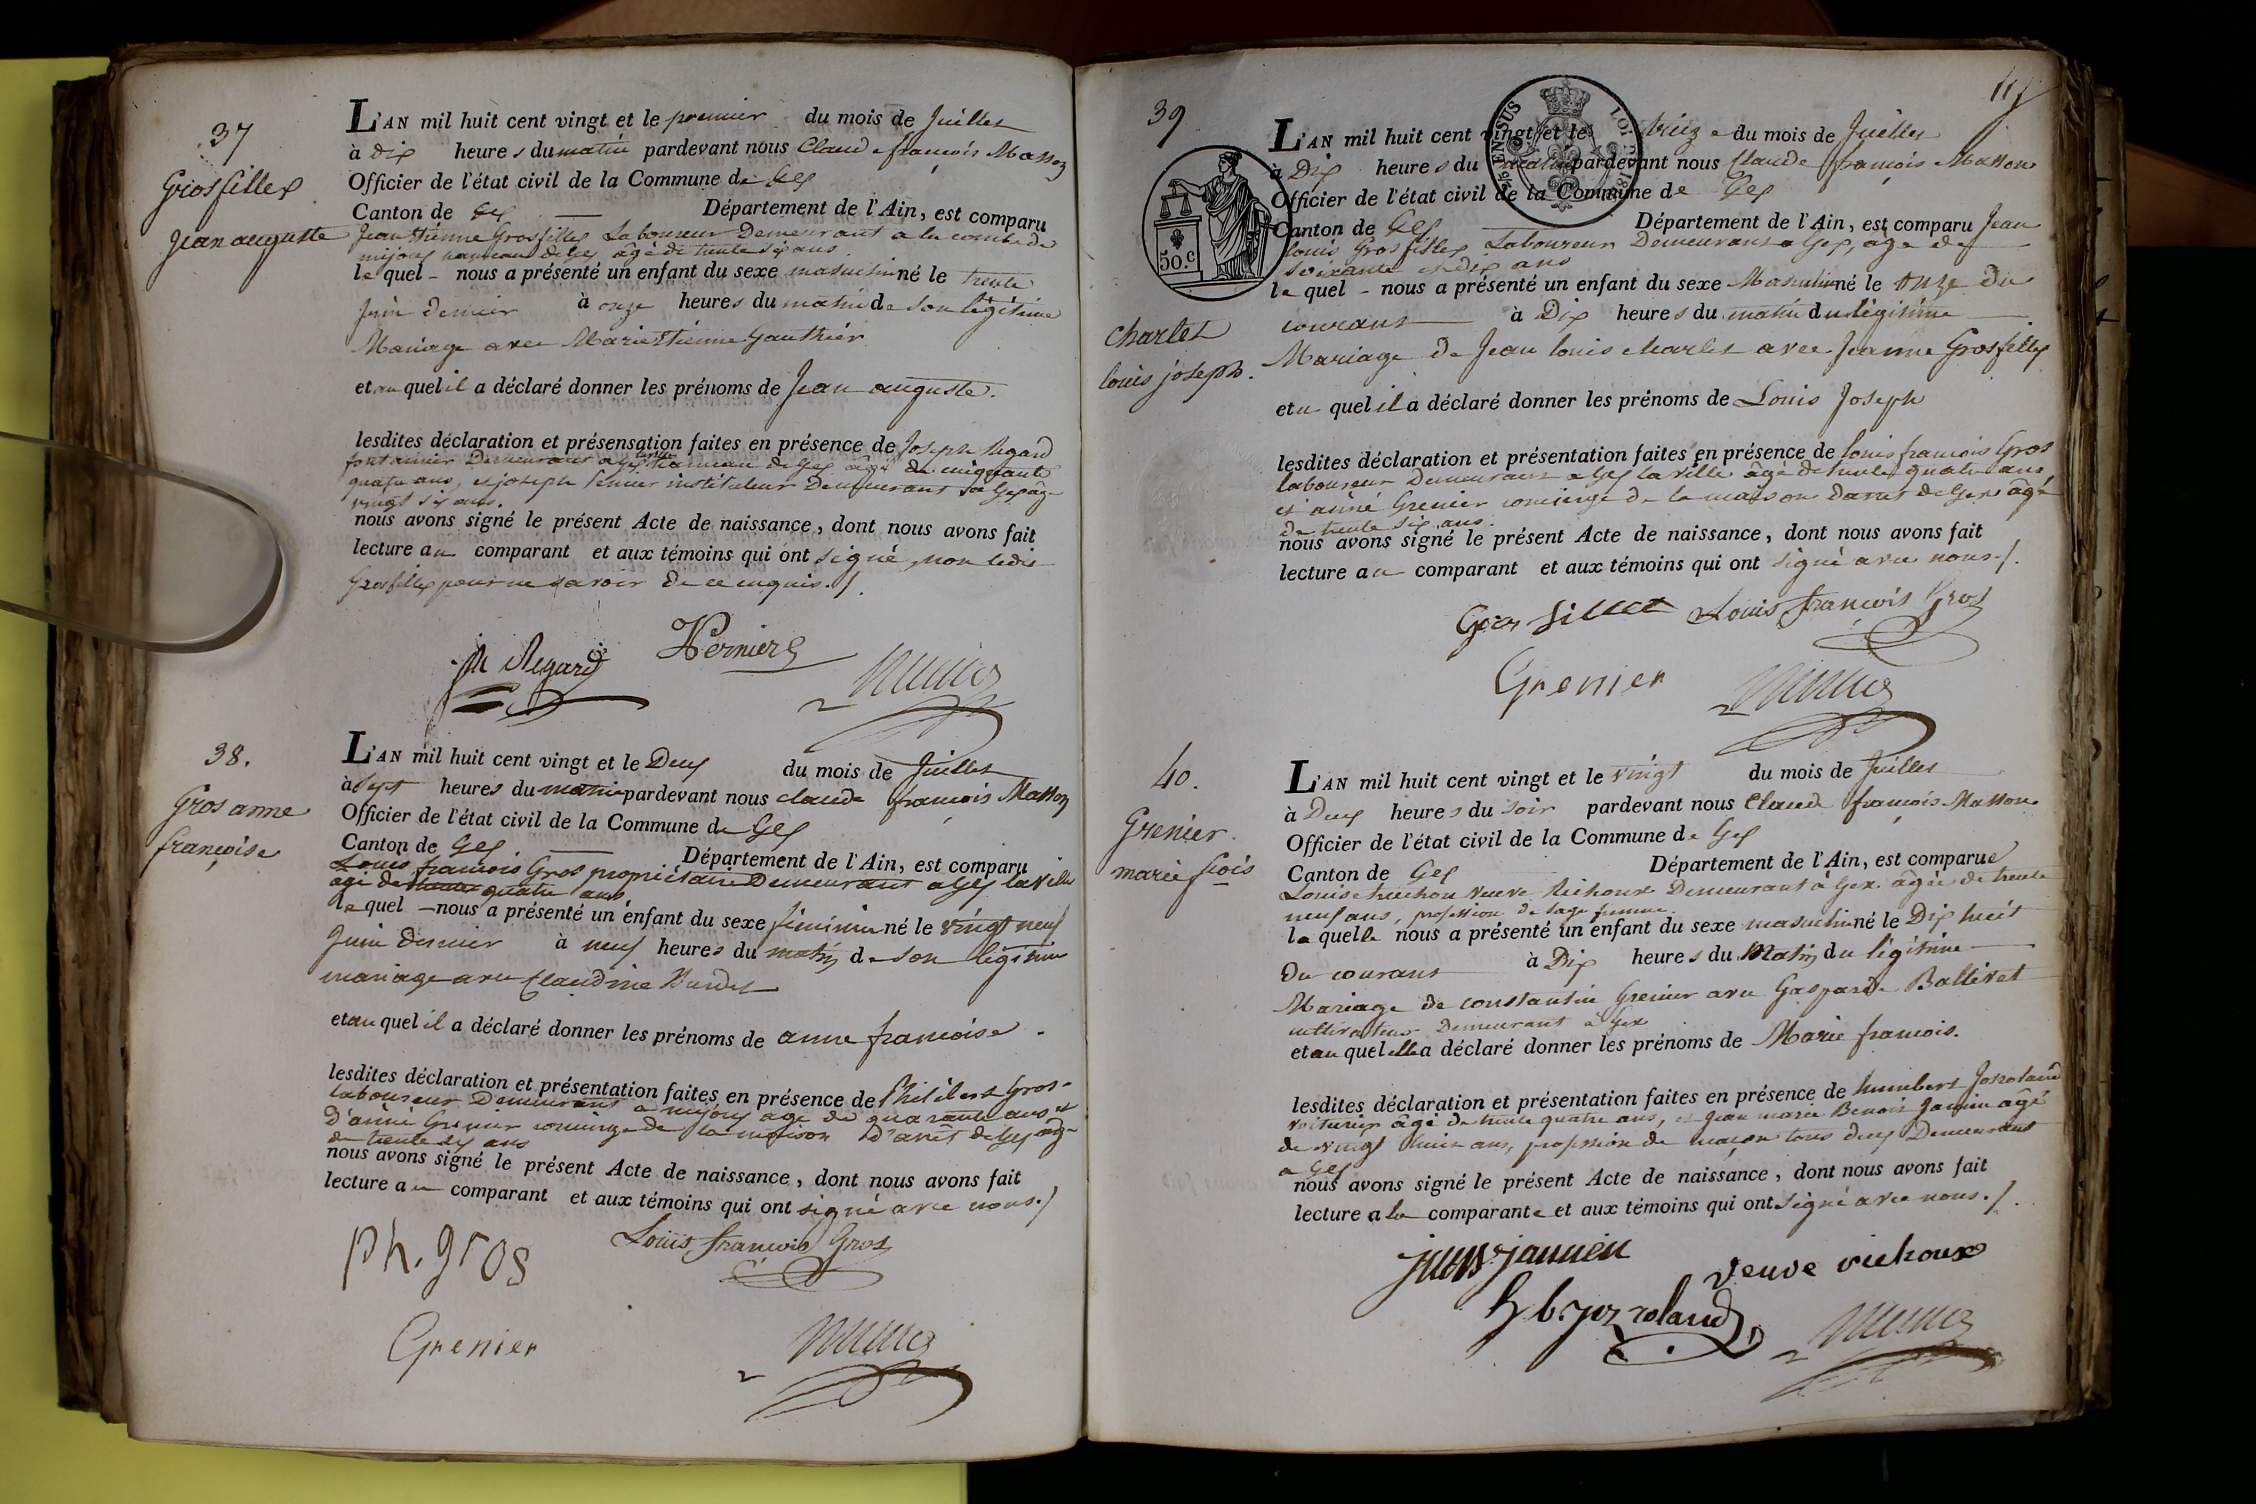 37
Grosfillex
Jean auguste
L'AN mil huit cent vingt et le premier du mois de Juillet
à Dix heures du matin pardevant nous Claude françois Masson
Officier de l'état civil de la Commune de Gex
Canton de Gex Département de l'Ain, est comparu
Jean Etienne Grosfillex Laboureur Demeurant a la combe de
mijoux hameau de Gex âgé de trente six ans
lequel nous a présenté un enfant du sexe masculin né le trente
Juin dernier à onze heures du matin de son légitime
Mariage avec Marie Etienne Gauthier
et au quel il a déclaré donner les prénoms de Jean auguste.
lesdites déclaration et présensation faites en présence de Joseph Regard
fontainier Demeurant a Gex hameau de Gex âgé de cinquante
quatre ans, et joseph instituteur Demeurant à Gex âgé
vingt six ans.
nous avons signé le présent Acte de naissance, dont nous avons fait
lecture au comparant et aux témoins qui ont signé, non ledit
Grosfillex pour ne savoir de ce enquis./.
Regard
38.
Gros anne
françoise
L'AN mil huit cent vingt et le Deux du mois de Juillet
à sept heures du matin pardevant nous claude françois Masson
Officier de l'état civil de la Commune de Gex
Canton de Gex Département de l'Ain, est comparu
Louis françois Gros propriétaire Demeurant a Gex la ville
âgé de trente quatre ans
lequel nous a présenté un enfant du sexe féminin né le vingt neuf
Juin dernier à neuf heures du matin de son légitime
mariage avec Claudine
et au quel il a déclaré donner les prénoms de anne françoise.
lesdites déclaration et présentation faites en présence de Philibert Gros
laboureur Demeurant a mijoux âgé de quarante ans et
D'aimé Grenier concierge de la maison D'arrêt de Gex âgé
de trente six ans
nous avons signé le présent Acte de naissance, dont nous avons fait
lecture au comparant et aux témoins qui ont signé avec nous./
ph. gros
Louis françois Gros
Grenier
39
Charlet
louis joseph.
50.c
L'AN mil huit cent vingt et le treize du mois de Juillet
à Dix heures du matin pardevant nous Claude françois Masson
Officier de l'état civil de la Commune de Gex
Canton de Gex Département de l'Ain, est comparu Jean
louis Grosfillex Laboureur Demeurant a Gex, âgé de
soixante et dix ans
lequel nous a présenté un enfant du sexe Masculin né le onze du
courant à Dix heures du matin du légitime
Mariage de Jean louis charlet avec Jeanne Grosfillex
et au quel il a déclaré donner les prénoms de Louis Joseph
lesdites déclaration et présentation faites en présence de louis françois Gros
laboureur Demeurant a Gex la ville âgé de trente quatre ans
et aimé Grenier concierge de la maison d'arret de Gex âgé
de trente six ans.
nous avons signé le présent Acte de naissance, dont nous avons fait
lecture au comparant et aux témoins qui ont signé avec nous./.
Grosfillet Louis françois Gros
Grenier
40.
Grenier
marie fcois
L'AN mil huit cent vingt et le vingt du mois de Juillet
à Deux heures du soir pardevant nous Claude françois Masson
Officier de l'état civil de la Commune de Gex
Canton de Gex Département de l'Ain, est comparue
Louise truchon veuve Richoux Demeurant à Gex. âgée de trente
neuf ans, profession de sage femme
laquelle nous a présenté un enfant du sexe masculin né le Dix huit
Du courant à Dix heures du Matin du légitime
Mariage de constantin Grenier avec Gasparde Ballivet
cultivateur Demeurant à Gex
et au quel elle a déclaré donner les prénoms de Marie françois.
lesdites déclaration et présentation faites en présence de humbert Joz roland
voiturier âgé de trente quatre ans, et Jean marie Benoit Jannin âgé
de vingt huit ans, profession de maçon tous deux Demeurant
a Gex
nous avons signé le présent Acte de naissance, dont nous avons fait
lecture a la comparante et aux témoins qui ont signé avec nous./.
veuve richoux
hb. joz roland